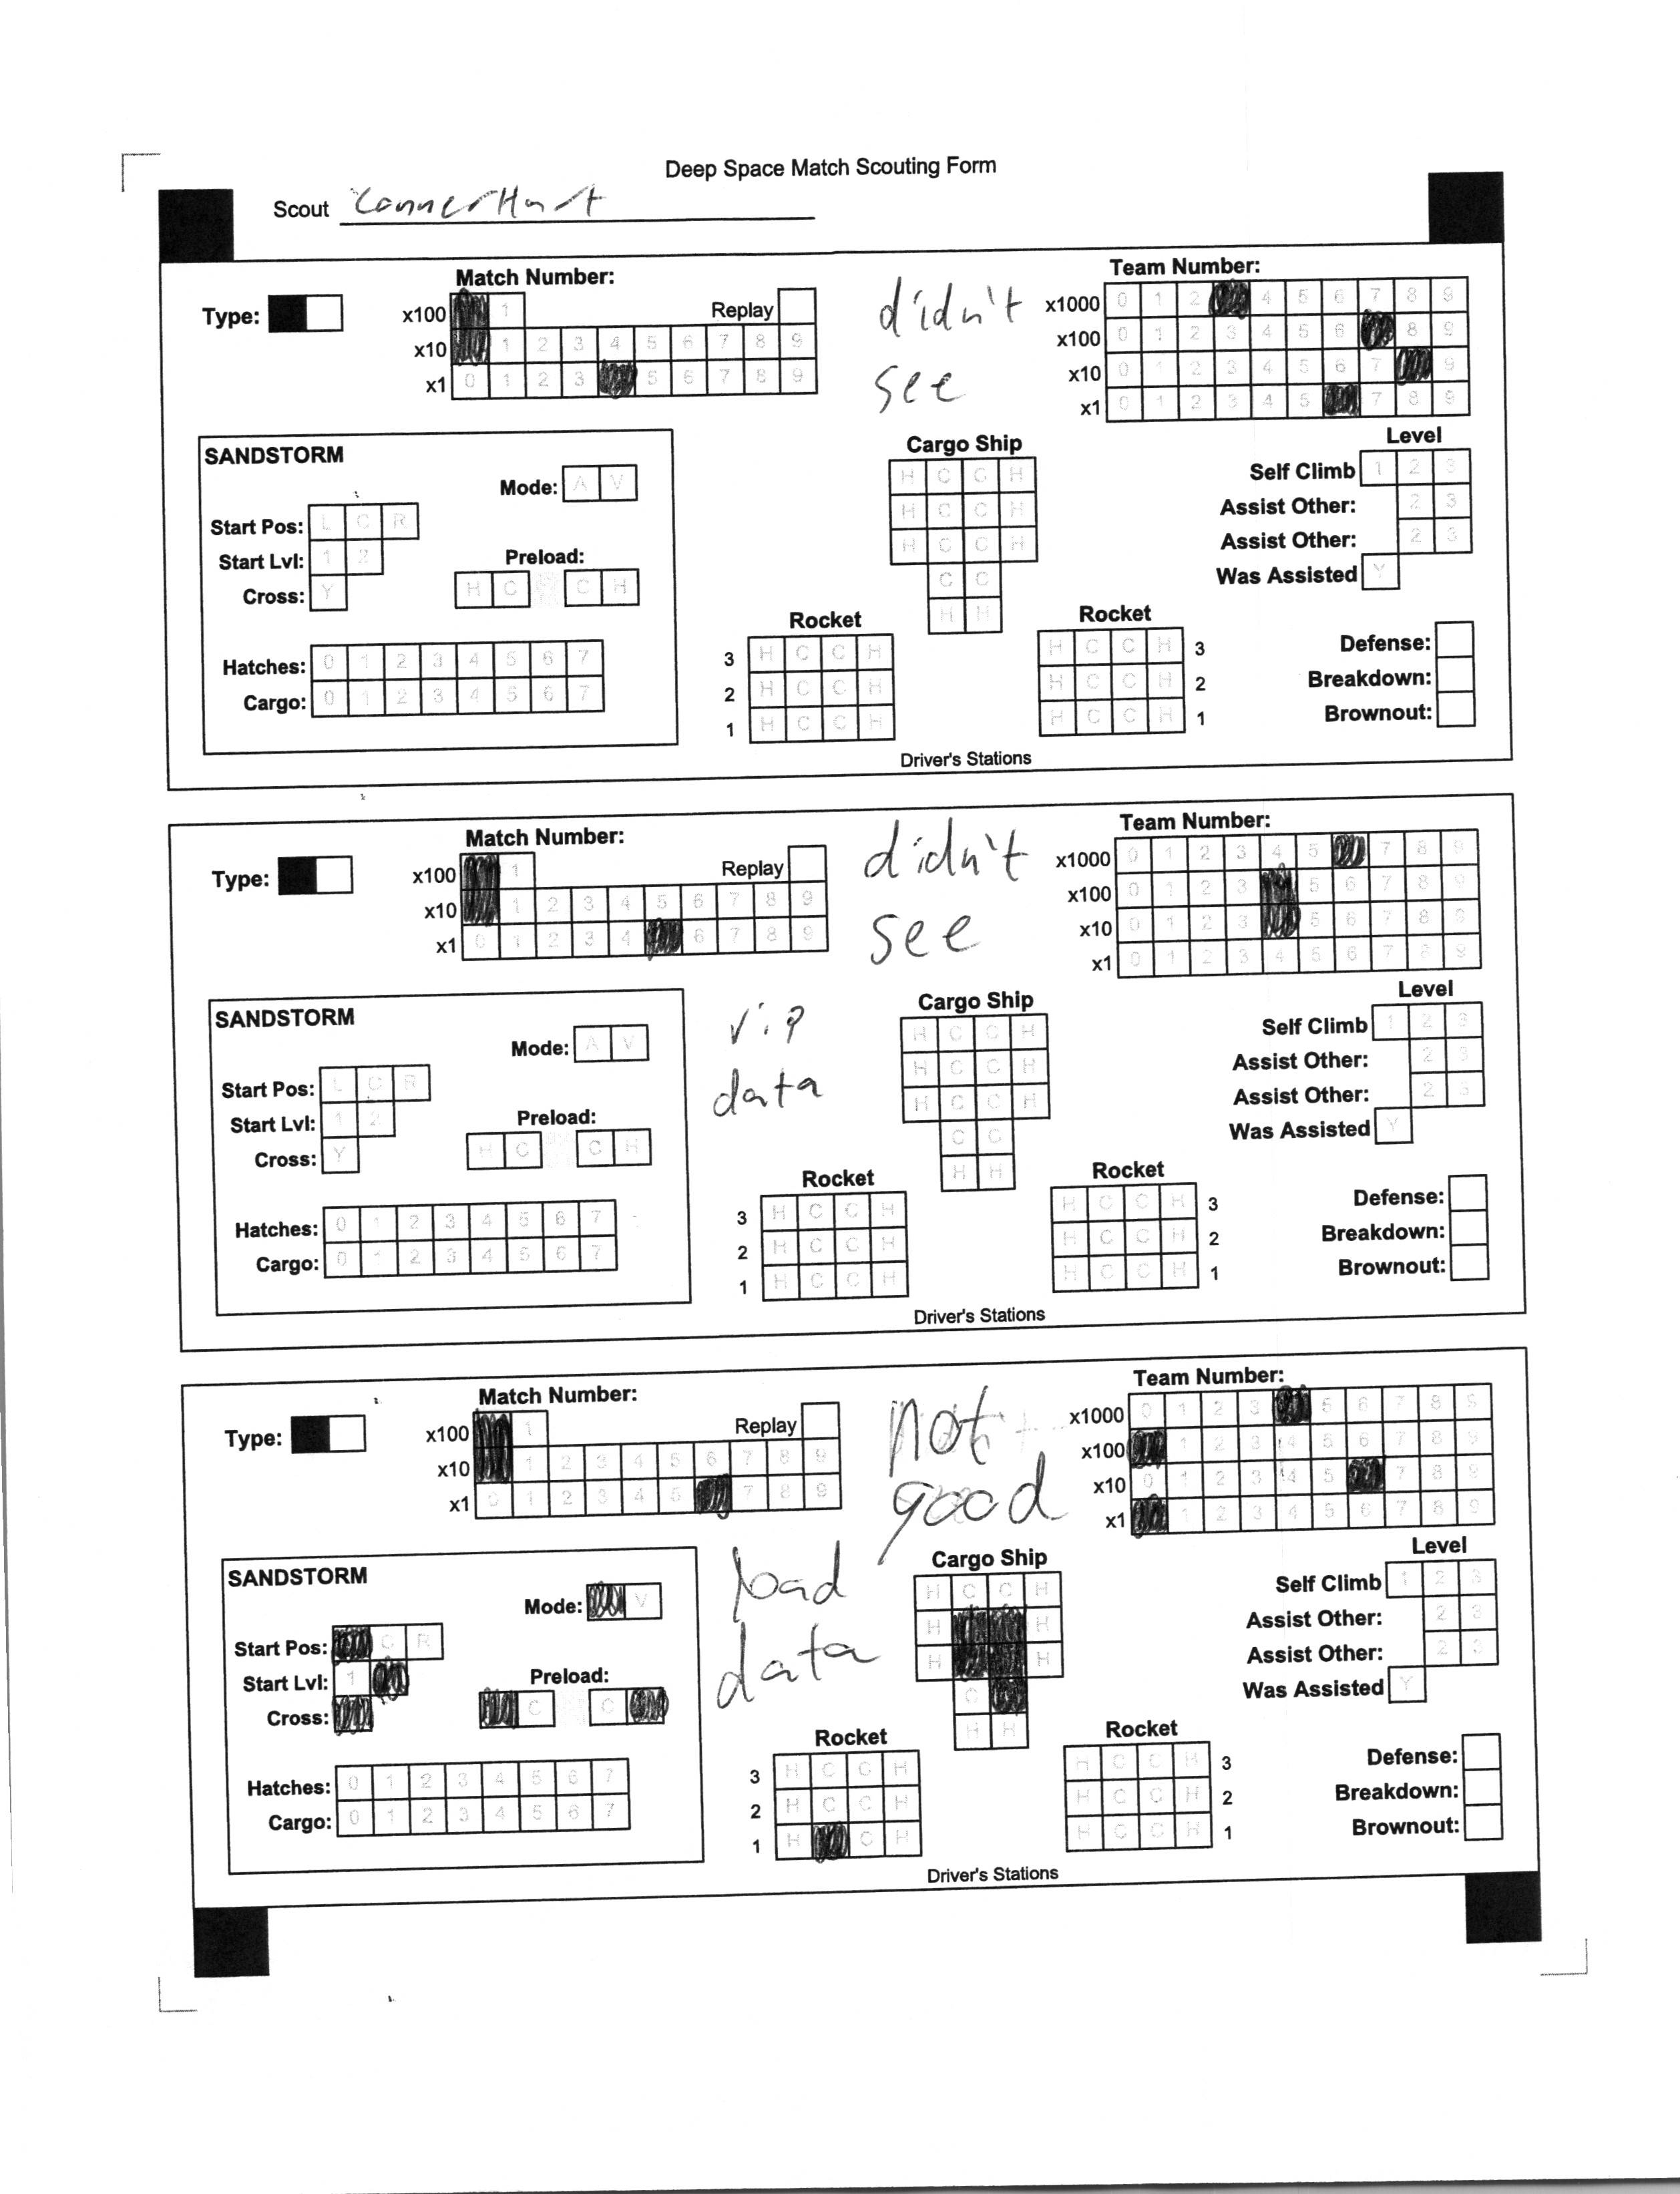 Deep Space Match Scouting Form
Scout Conner Hart
Match Number:
Team Number:
Type:
x100 1
Replay
x10 1 2 3 4 5 6 7 8 9
x1 0 1 2 3 5 6 7 8 9
didn't
see
x1000 0 1 2 4 5 6 7 8 9
x100 0 1 2 3 4 5 6 8 9
x10 0 1 2 3 4 5 6 7 9
x1 0 1 2 3 4 5 7 8 9
SANDSTORM
Mode: A V
Start Pos: L C R
Start Lvl: 1 2
Cross: Y
Preload:
H C C H
Hatches: 0 1 2 3 4 5 6 7
Cargo: 0 1 2 3 4 5 6 7
Cargo Ship
H C C H
H C C H
H C C H
C C
H H
Rocket
3 H C C H
2 H C C H
1 H C C H
Rocket
H C C H 3
H C C H 2
H C C H 1
Driver's Stations
Level
Self Climb 1 2 3
Assist Other: 2 3
Assist Other: 2 3
Was Assisted Y
Defense:
Breakdown:
Brownout:
Match Number:
Team Number:
Type:
x100 1
Replay
x10 1 2 3 4 5 6 7 8 9
x1 0 1 2 3 4 6 7 8 9
didn't
see
x1000 0 1 2 3 4 5 7 8 9
x100 0 1 2 3 5 6 7 8 9
x10 0 1 2 3 5 6 7 8 9
x1 0 1 2 3 4 5 6 7 8 9
SANDSTORM
Mode: A V
Start Pos: L C R
Start Lvl: 1 2
Cross: Y
Preload:
H C C H
Hatches: 0 1 2 3 4 5 6 7
Cargo: 0 1 2 3 4 5 6 7
r.i.p
data
Cargo Ship
H C C H
H C C H
H C C H
C C
H H
Rocket
3 H C C H
2 H C C H
1 H C C H
Rocket
H C C H 3
H C C H 2
H C C H 1
Driver's Stations
Level
Self Climb 1 2 3
Assist Other: 2 3
Assist Other: 2 3
Was Assisted Y
Defense:
Breakdown:
Brownout:
Match Number:
Team Number:
Type:
x100 1
Replay
x10 1 2 3 4 5 6 7 8 9
x1 0 1 2 3 4 5 7 8 9
not
good
x1000 0 1 2 3 5 6 7 8 9
x100 1 2 3 4 5 6 7 8 9
x10 0 1 2 3 4 5 7 8 9
x1 1 2 3 4 5 6 7 8 9
SANDSTORM
Mode: V
Start Pos: C R
Start Lvl: 1
Cross:
Preload:
C C
Hatches: 0 1 2 3 4 5 6 7
Cargo: 0 1 2 3 4 5 6 7
bad
data
Cargo Ship
H C C H
H H
H H
C
H H
Rocket
3 H C C H
2 H C C H
1 H C H
Rocket
H C C H 3
H C C H 2
H C C H 1
Driver's Stations
Level
Self Climb 1 2 3
Assist Other: 2 3
Assist Other: 2 3
Was Assisted Y
Defense:
Breakdown:
Brownout: